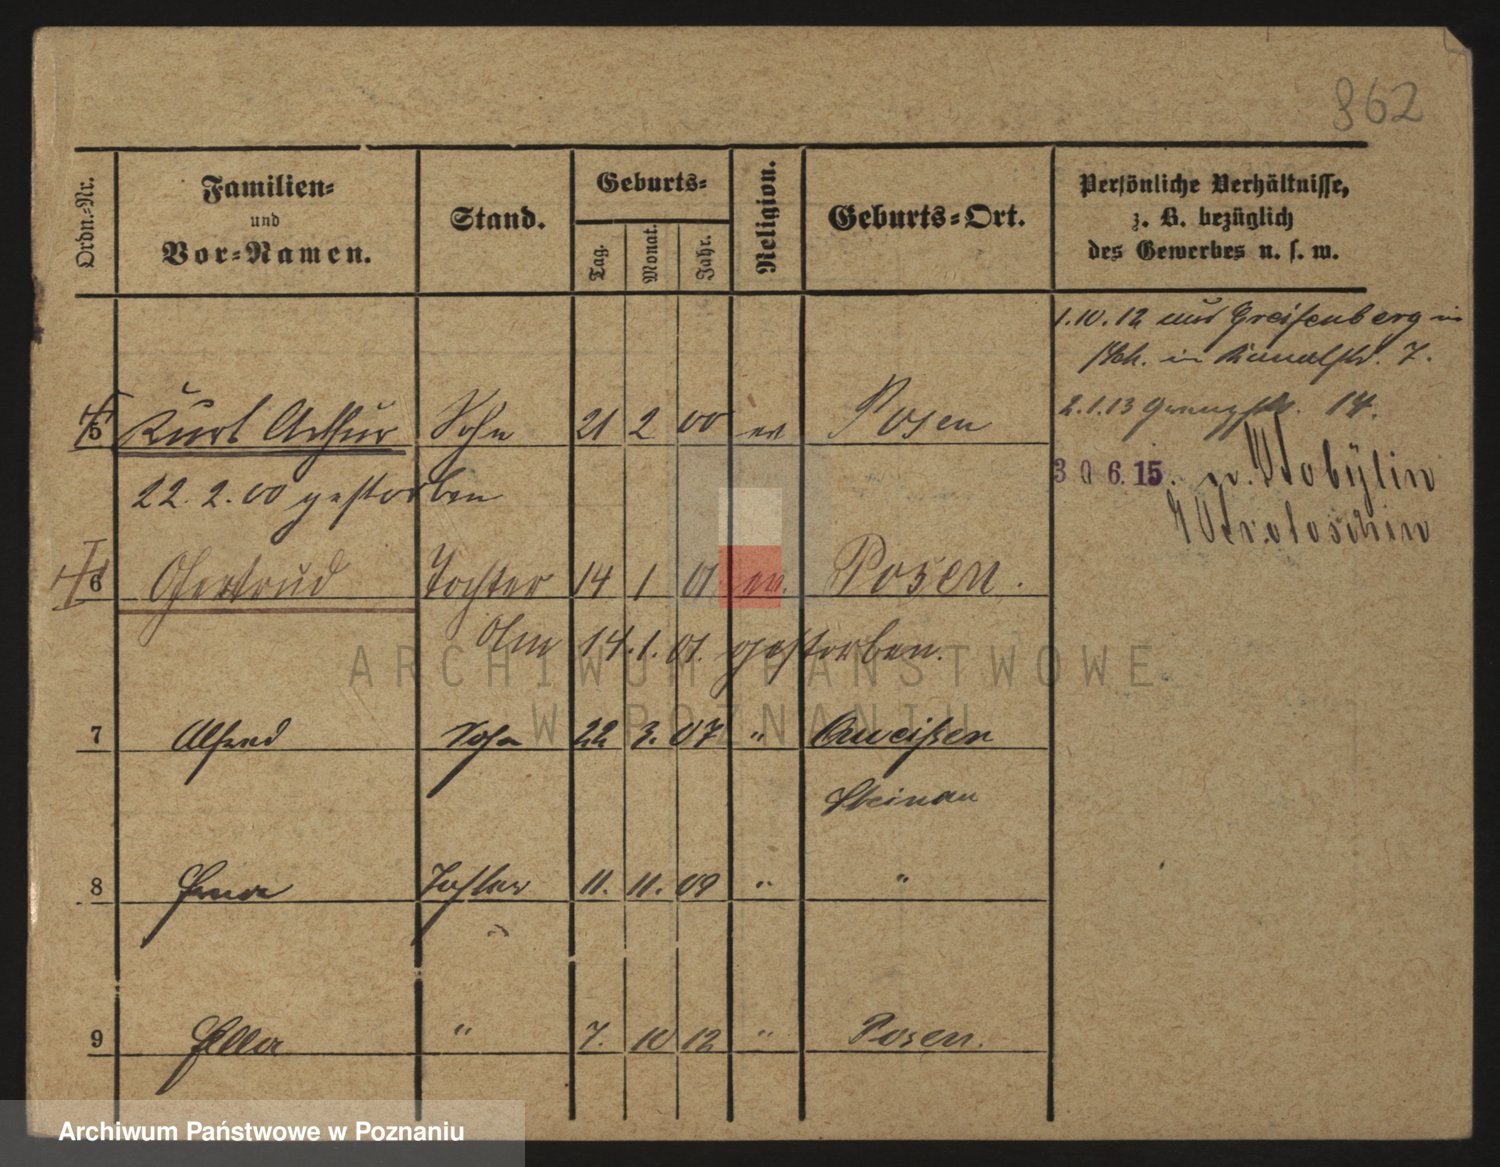 862
Ordn.-Nr.
Familien-
und
Vor-Namen.
Stand.
Geburts-
Tag. Monat. Jahr.
Religion.
Geburts-Ort.
Persönliche Verhältnisse,
z. B. bezüglich
des Gewerbes u. s. w.
1.10.12 aus Greifenberg in
in 7.
5 Kurt Arthur Sohn 21 2 00 ev Posen
2.1.13 14.
22. 2. 00 gestorben
30 6. 15. n. Kobylin
Krotoschin
6 Gertrud Tochter 14 1 01 ev. Posen.
Am 14.1.01. gestorben.
7 Alfred Sohn 22 3. 07 "
Steinau
8 Tochter 11. 11. 09 " "
9 Ella " 7. 10 12 " Posen.
ARCHIWUM PAŃSTWOWE
W POZNANIU
Archiwum Państwowe w Poznaniu